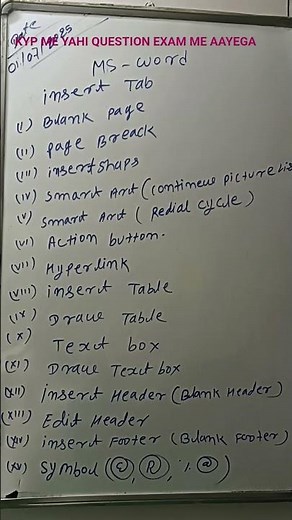 Date
01/07/2025
KYP ME YAHI QUESTION EXAM ME AAYEGA
MS-Word
insert Tab
(I) Blank page
(II) page Breack
(III) insert shaps
(IV) Smart Art (Continew picture Lis
(V) Smart Art (Redial cycle)
(VI) Action button.
(VII) Hyperlink
(VIII) insert Table
(IX) Draw Table
(X) Text box
(XI) Draw Text box
(XII) insert Header (Blank Header)
(XIII) Edit Header
(XIV) insert Footer (Blank Footer)
(XV) Symbol (©, ®, % @)